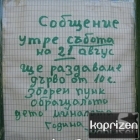 Собщение
утре събота
на 21 авгус
ще раздаваме
дърво от 10 с.
зборен пунк
обращалото
дето миналата
година
kaprizen